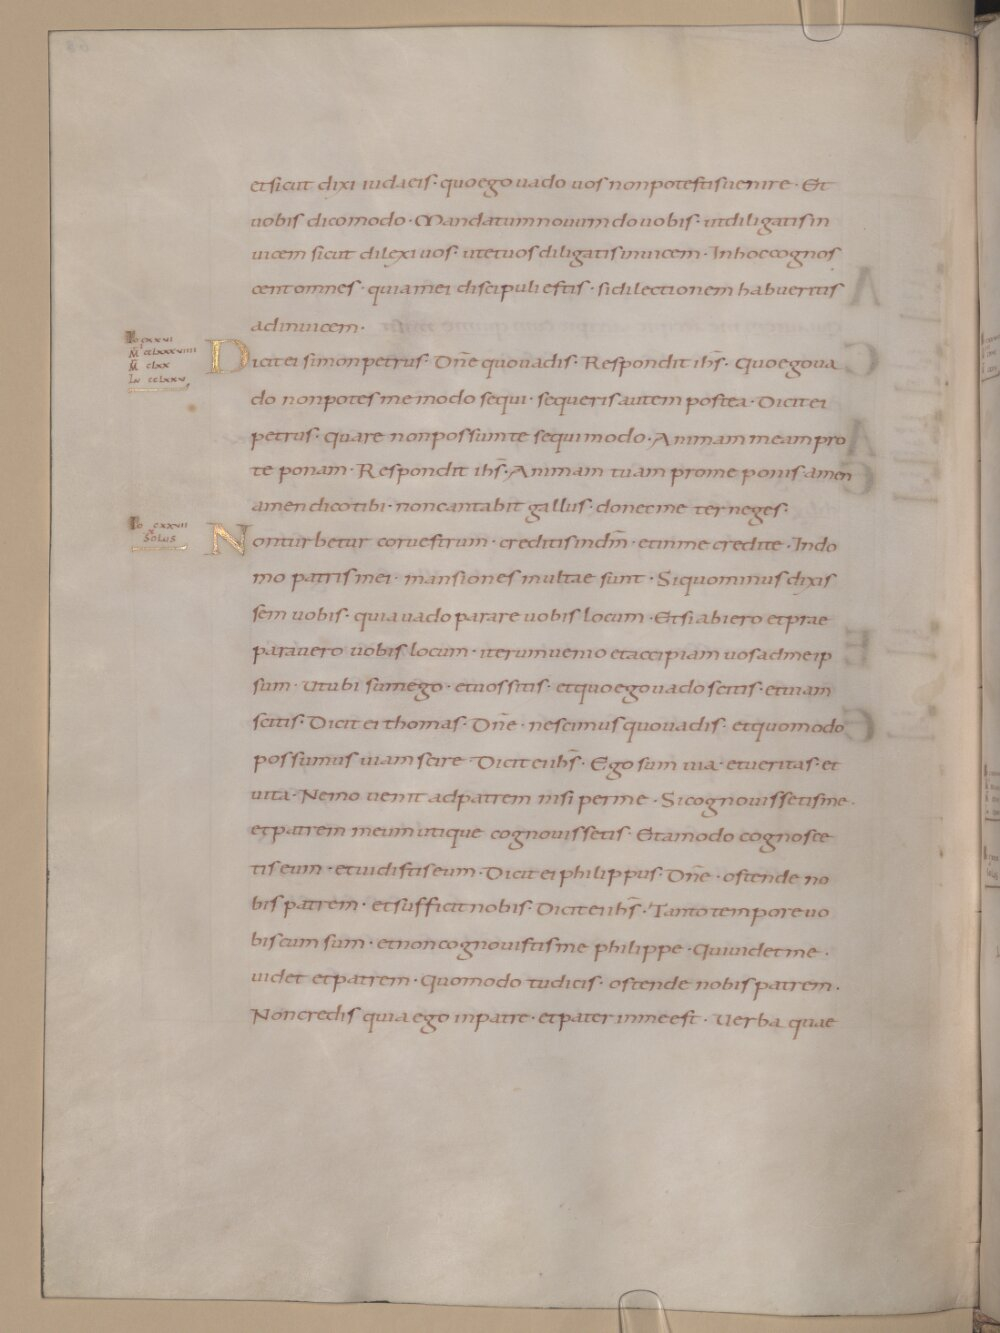 et sicut dixi iudaeis· quo ego uado uos non potestis uenire· Et
uobis dico modo· Mandatum nouum do uobis· ut diligatis in
uicem sicut dilexi uos· ut et uos diligatis inuicem· In hoc cognos
cent omnes· quia mei discipuli estis· si dilectionem habueritis
ad inuicem·
Io cxxvi
M cclxxxviiii
M clxx
Lu cclxxv
Dicit ei simon petrus· Dn̄e quo uadis· Respondit ih̄s· Quo ego ua
do non potes me modo sequi· sequeris autem postea· Dicit ei
petrus· quare non possum te sequi modo· Animam meam pro
te ponam· Respondit ih̄s· Animam tuam pro me ponis amen
amen dico tibi· non cantabit gallus· donec me ter neges·
Io cxxvii
solus
Non turbetur cor uestrum· creditis in dm̄· et in me credite· In do
mo patris mei· mansiones multae sunt· Si quo minus dixis
sem uobis· quia uado parare uobis locum· Et si abiero et prae
parauero uobis locum· iterum uenio et accipiam uos ad me ip
sum· Ut ubi sum ego· et uos sitis· et quo ego uado scitis· et uiam
scitis· Dicit ei thomas· Dn̄e· nescimus quo uadis· et quomodo
possumus uiam scire Dicit ei ih̄s· Ego sum uia· et ueritas· et
uita· Nemo uenit ad patrem nisi per me· Si cognouissetis me·
et patrem meum utique cognouissetis· Et amodo cognosce
tis eum· et uidistis eum· Dicit ei philippus· Dn̄e· ostende no
bis patrem· et sufficit nobis· Dicit ei ih̄s· Tanto tempore uo
biscum sum· et non cognouistis me philippe· Qui uidet me·
uidet et patrem· Quomodo tu dicis· ostende nobis patrem·
Non credis quia ego in patre· et pater in me est· Uerba quae